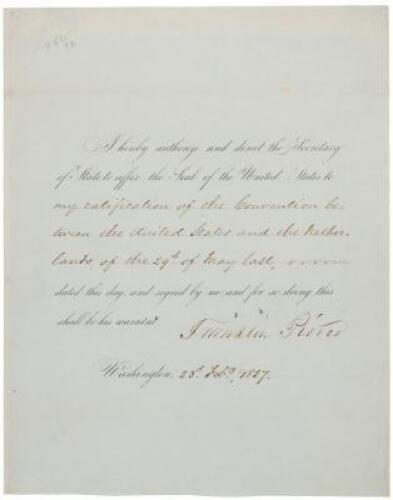 I hereby authorize and direct the Secretary
of State to affix the Seal of the United States to
my ratification of the Convention be-
tween the United States and the Nether-
lands, of the 29th of May last,
dated this day, and signed by me and for so doing this
shall be his warrant.
Franklin Pierce
Washington, 23d Feb. 1857.